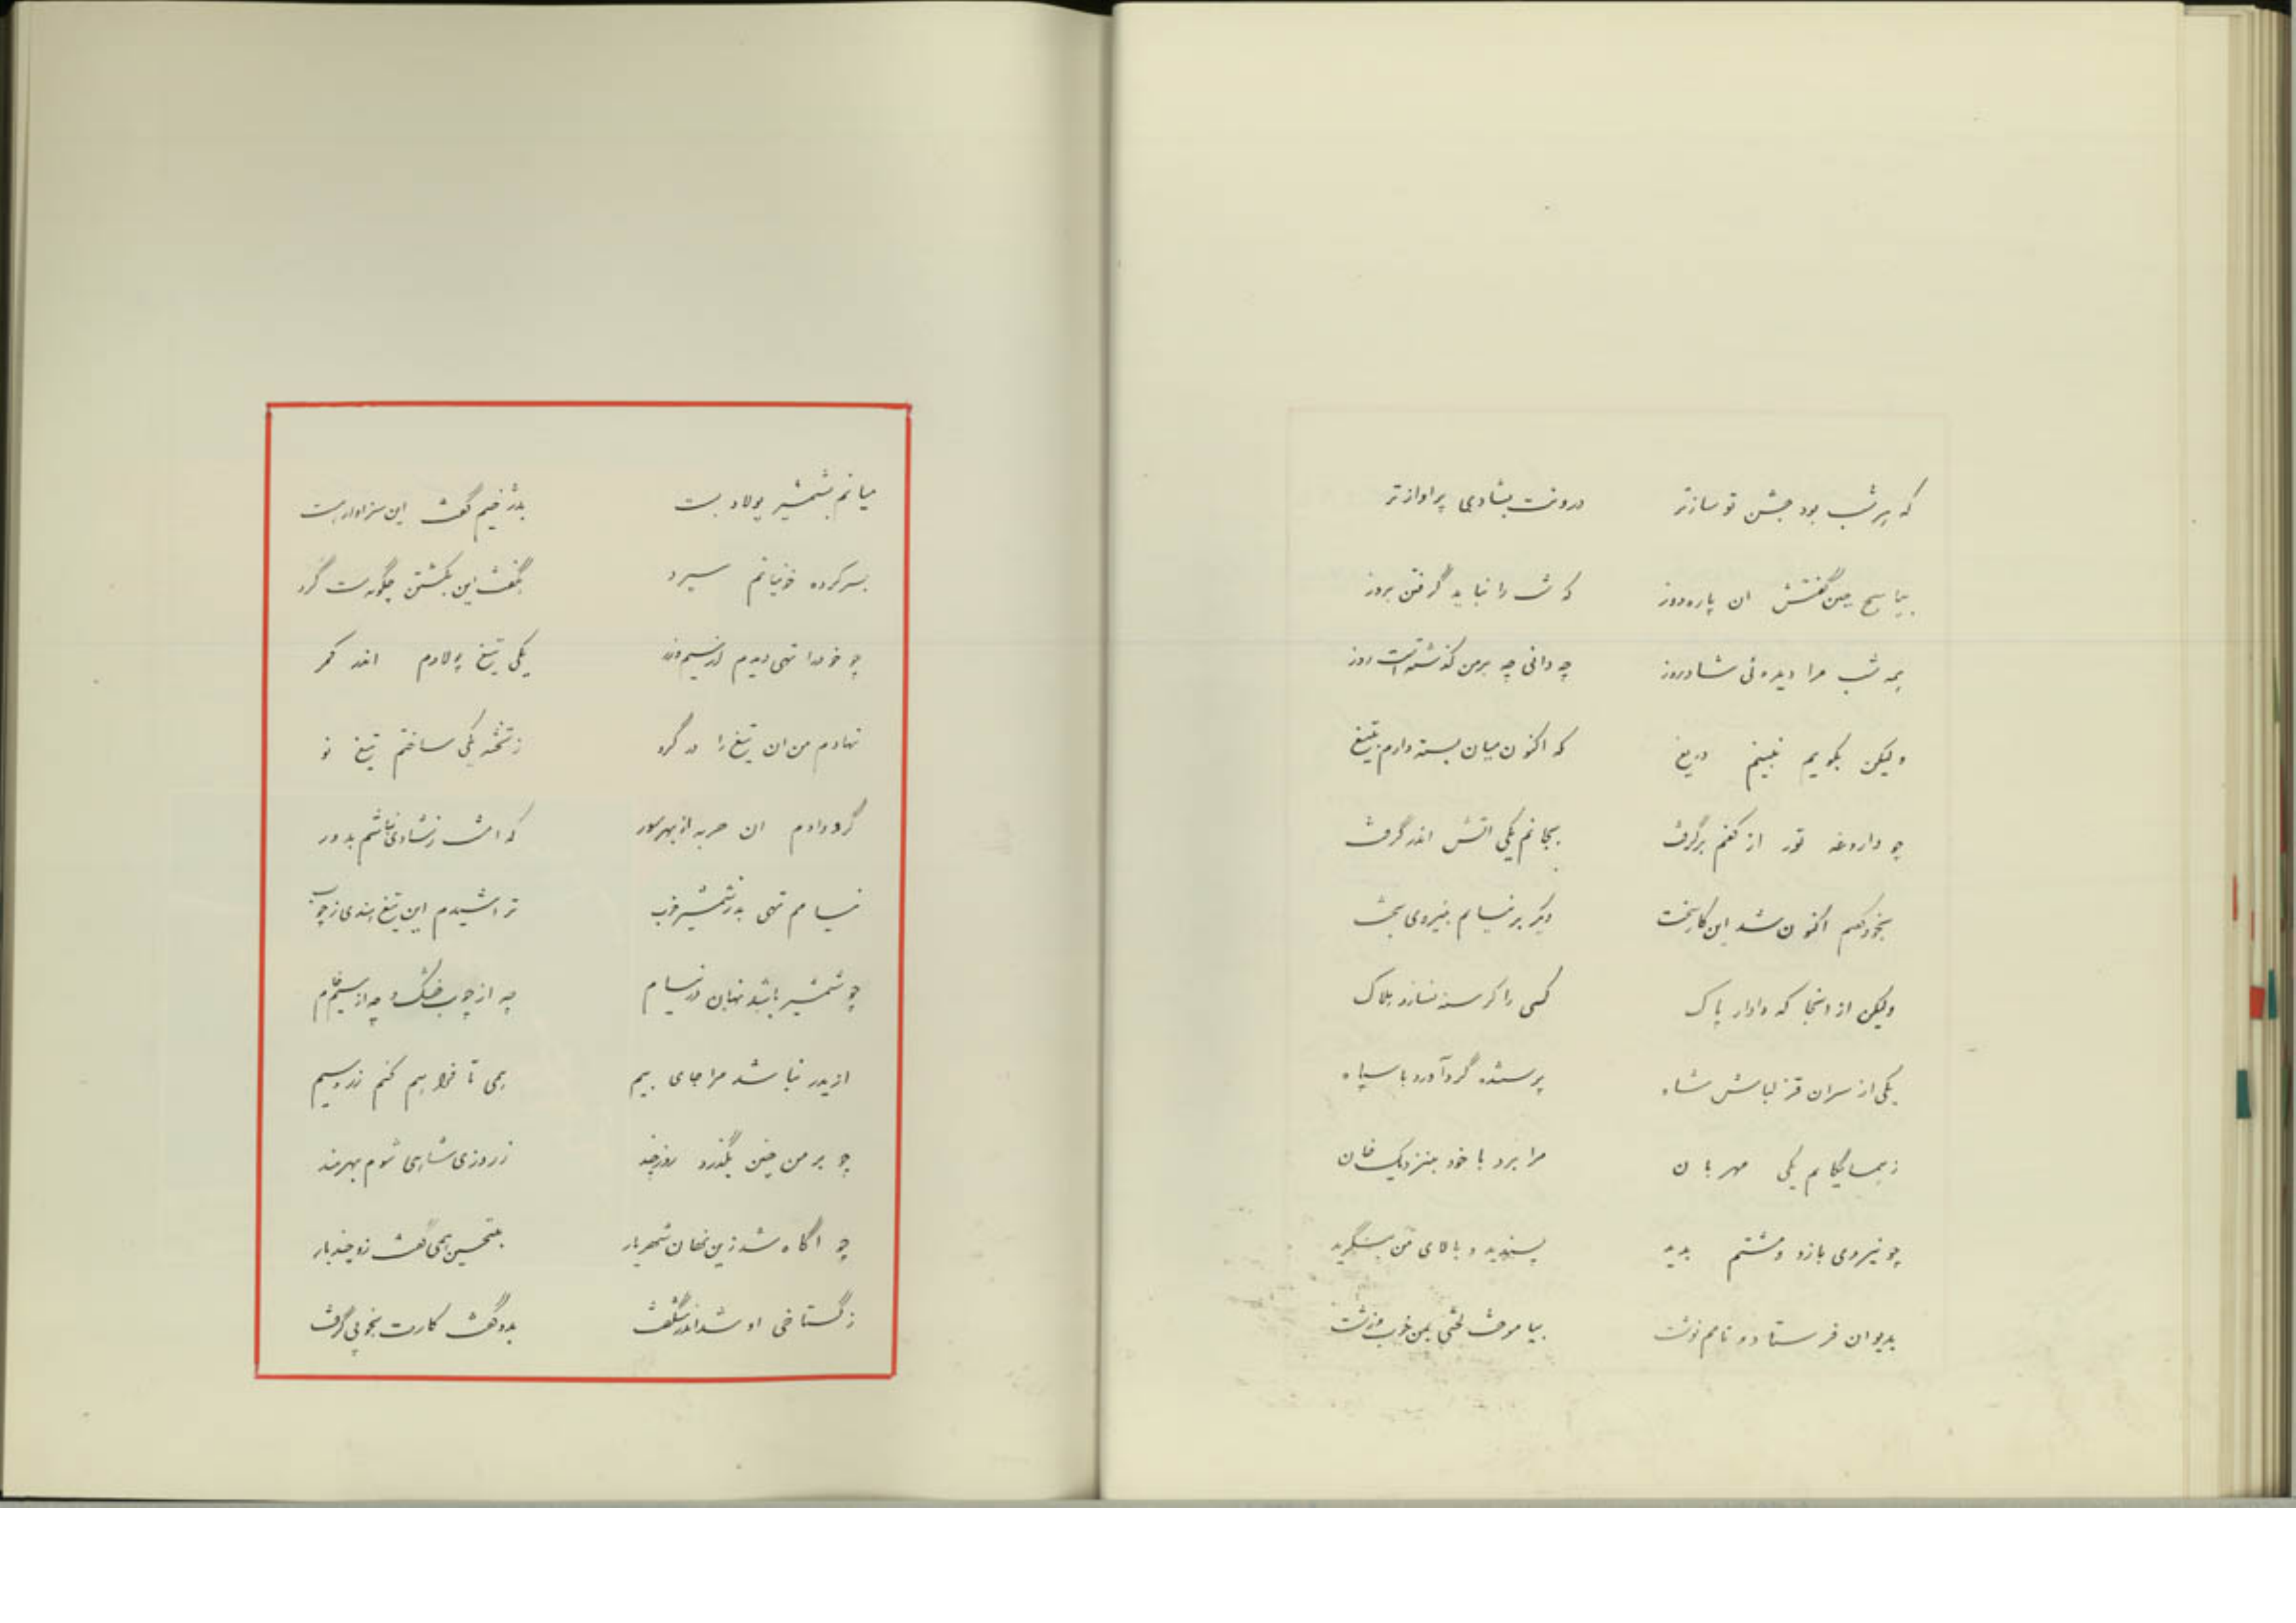 که پرشب بود جشن تو سازتر درونت بشادی پراوازتر
بپاسخ چنین گفتش ان پاره‌دوز که شب را نباید گرفتن بروز
همه شب مرا دیده‌ئی شادروز چه دانی چه برمن گذشته است روز
ولیکن بگویم نبینم دریغ که اکنون میان بسته دارم بتیغ
چو داروغه تور از کفم برگرفت بجانم یکی اتش اندر گرفت
بخود گفتم اکنون شد این کار سخت دگر برنیایم بنیروی بخت
ولیکن از انجا که دادار پاک کسی را گرسنه نسازد هلاک
یکی از سران قزلباش شاه پرستنده گردآورد با سپاه
ز همسایگانم یکی مهربان مرا برد با خود بنزدیک خان
چو نیروی بازو و مشتم بدید پسندید و بالای من بنگرید
بدیوان فرستاد و نامم نوشت بیاموخت لختی بمن خوب و زشت
میانم بشمشیر پولاد بست بدژخیم گفت این سزاوار هست
بسرکرده خونیانم سپرد بگفت این بکشتن چگونه‌ست گرد
چو خود را تهی دیدم از سیم و زر یکی تیغ پولادم اندر کمر
نهادم من ان تیغ را در گرو ز تخته یکی ساختم تیغ نو
گرو دادم ان حربه از بهر سور که امشب ز شادی نباشم بدور
نیامم تهی بد ز شمشیر خوب تراشیدم این تیغ هندی ز چوب
چو شمشیر باشد نهان در نیام چه از چوب خشک و چه از سیم خام
از یدر نباشد مرا جای بیم همی تا فراهم کنم زر و سیم
چو بر من چنین بگذرد روز چند ز روزی شاهی شوم بهرمند
چو اگاه شد زین نهان شهریار بتحسین همی گفت زو چند بار
ز گستاخی او شد اندر شگفت بدو گفت کارت بخوبی گرفت